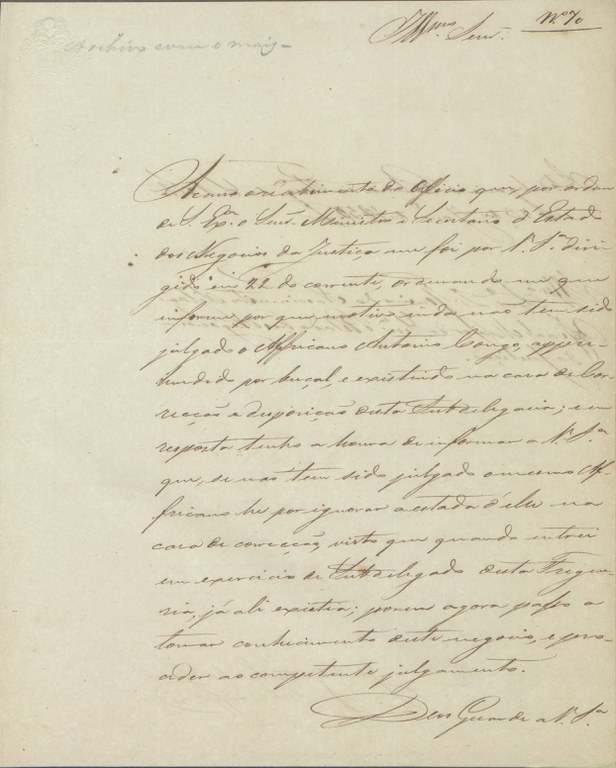 Nº 70
Illmo Senr.
Archive com o mais
Accuso o recebimento do Officio que, por ordem
de S. Exa. o Senr. Ministro e Secretario d'Estado
dos Negocios da Justiça me foi por V. Sa. diri-
gido em 22 do corrente, ordenando me que
informe por que motivo inda não tem sido
julgado o Affricano Antonio Congo, appre-
hendido por buçal, e existindo na casa de Cor-
recção a disposição desta Subdelegacia; e em
resposta tenho a honra de informar a V. Sa
que, se não tem sido julgado o mesmo Af-
fricano he por ignorar a estada d'elle na
casa de correcção, visto que quando entrei
em exercicio de Subdelegado desta Fregue-
sia, já ali existia; porem agora passo a
tomar conhecimento deste negocio, e pro-
ceder ao competente julgamento.
Deos Guarde a V. Sa